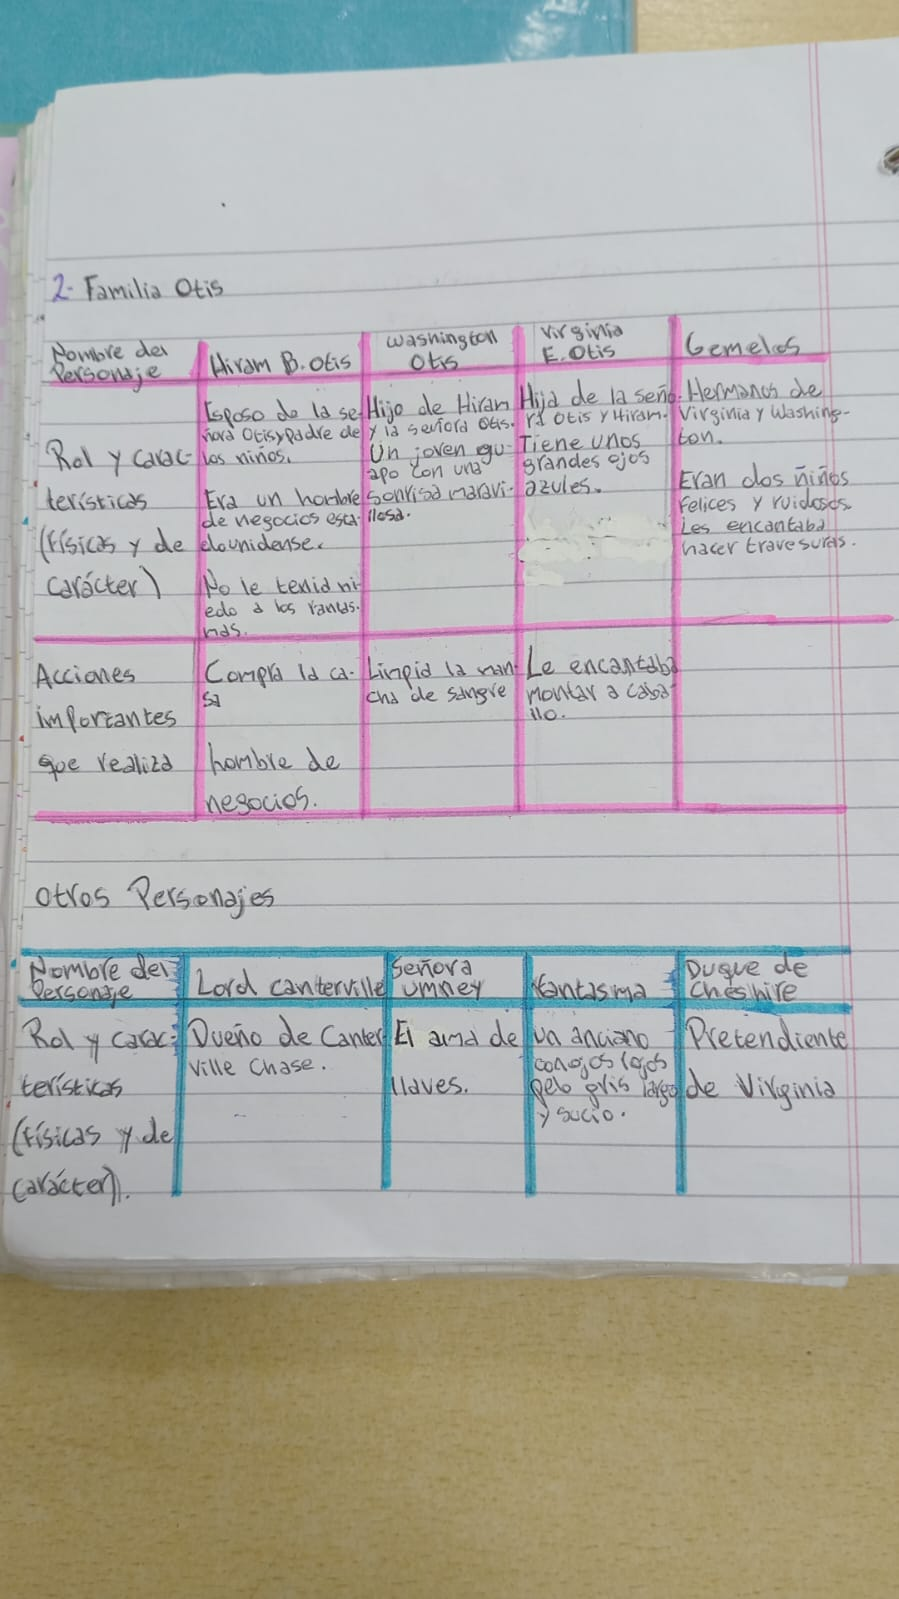 2- Familia Otis
Nombre del
Personaje
Hiram B. Otis
Washington
Otis
Virginia
E. Otis
Gemelos
Rol y carac-
terísticas
(físicas y de
carácter)
Esposo de la se-
ñora Otis y padre de
los niños.
Era un hombre
de negocios esta-
dounidense.
No le tenía mi-
edo a los fantas-
mas.
Hijo de Hiram
y la señora Otis.
Un joven gu-
apo con una
sonrisa maravi-
llosa.
Hija de la seño-
ra Otis y Hiram.
Tiene unos
grandes ojos
azules.
Hermanos de
Virginia y Washing-
ton.
Eran dos niños
felices y ruidosos.
Les encantaba
hacer travesuras.
Acciones
importantes
que realiza
Compra la ca-
sa
hombre de
negocios.
Limpia la man-
cha de sangre
Le encantaba
montar a caba-
llo.
Otros Personajes
Nombre del
Personaje
Lord Canterville
Señora
Umney
Fantasma
Duque de
Cheshire
Rol y carac-
terísticas
(físicas y de
carácter).
Dueño de Canter
ville Chase.
El ama de
llaves.
Un anciano
con ojos rojos
pelo gris largo
y sucio.
Pretendiente
de Virginia